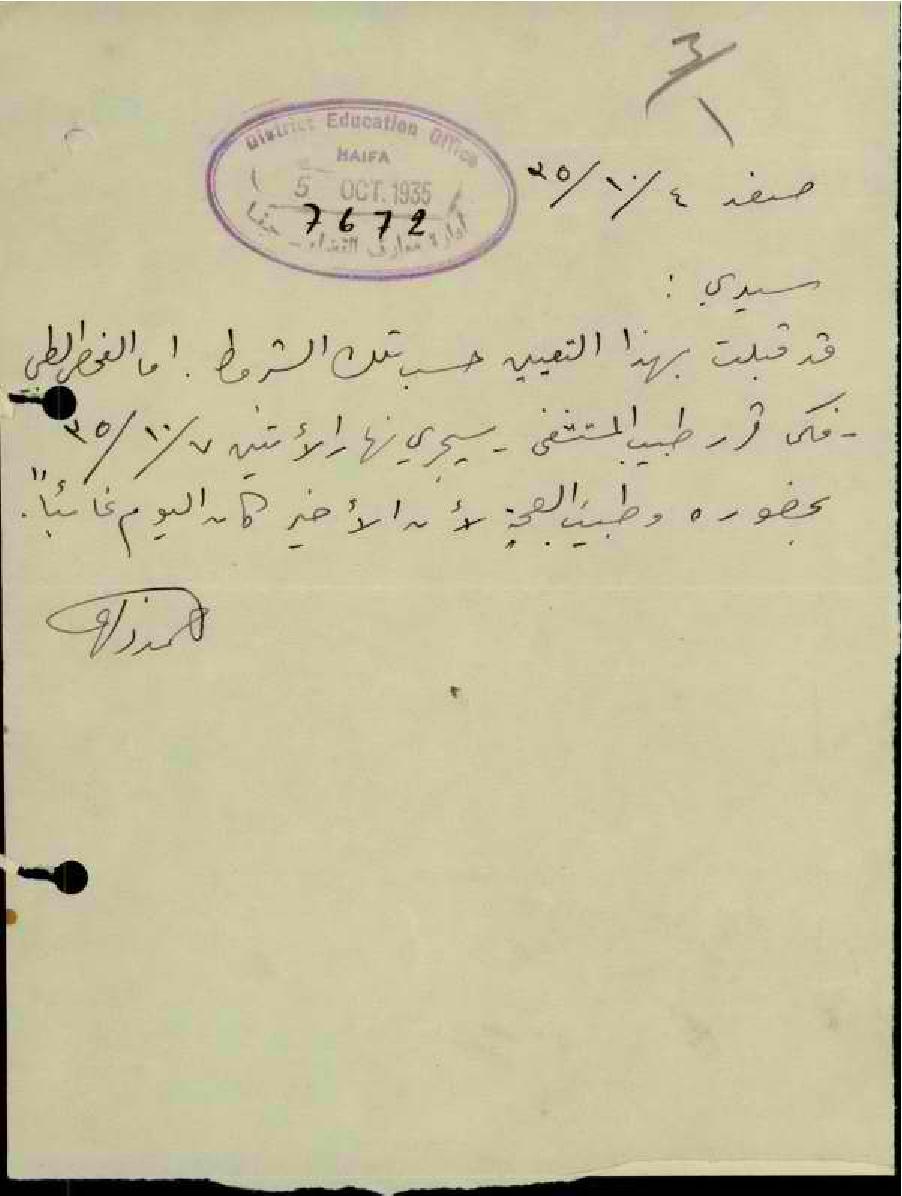 District Education Office
HAIFA
5 OCT. 1935
7672
ادارة معارف القضاء – حيفا
صفد ٤/١٠/٣٥
سيدي :
قد قبلت بهذا التعيين حسب تلك الشروط . اما الفحص الطبي
- قرر طبيب المستشفى - سيجري نهار الأثنين ٧/١٠/٣٥
بحضوره وطبيب الصحة لأن الأخير كان اليوم غائباً" .